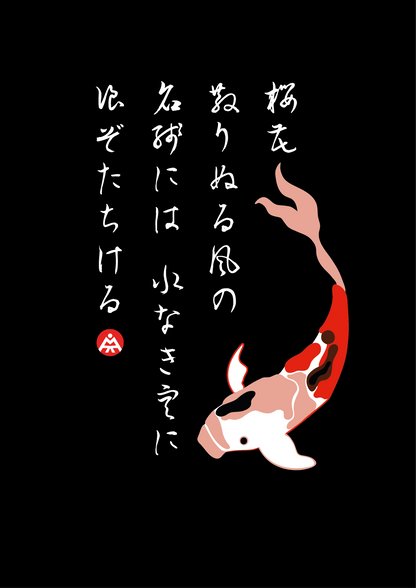 桜花
散りぬる風の
名残には 水なき空に
浪ぞたちける